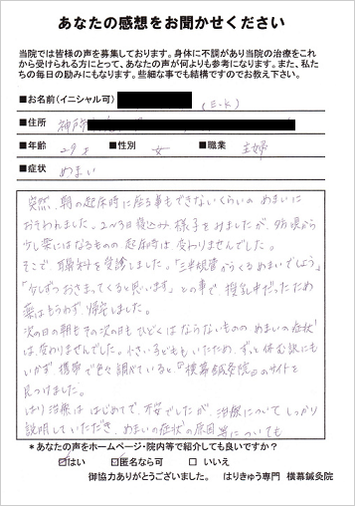 あなたの感想をお聞かせください
当院では皆様の声を募集しております。身体に不調があり当院の治療をこれ
から受けられる方にとって、あなたの声が何よりも参考になります。また、私た
ちの毎日の励みにもなります。些細な事でも結構ですのでお教え下さい。
■お名前(イニシャル可) (E.K)
■住所 神戸
■年齢 29才 ■性別 女 ■職業 主婦
■症状 めまい
突然、朝の起床時に座る事もできないくらいの めまいに
おそわれました。2〜3日寝込み 様子をみましたが、夕方頃から
少し楽にはなるものの、起床時は 変わりませんでした。
そこで、耳鼻科を受診しました。「三半規管からくるめまいでしょう」
「少しずつおさまってくると思います」との事で、授乳中だったため
薬はもらわず、帰宅しました。
次の日の朝もその次の日も ひどくはならないものの めまいの症状
は変わりませんでした。小さい子どももいたため、ずっと休む訳にも
いかず 携帯で色々調べていると、『横幕鍼灸院』のサイトを
見つけました。
はり治療は はじめてで、不安でしたが、治療について しっかり
説明していただき、めまいの症状の原因 等についても
*あなたの声をホームページ・院内等で紹介しても良いですか?
☑はい □匿名なら可 □いいえ
御協力ありがとうございました。 はりきゅう専門 横幕鍼灸院